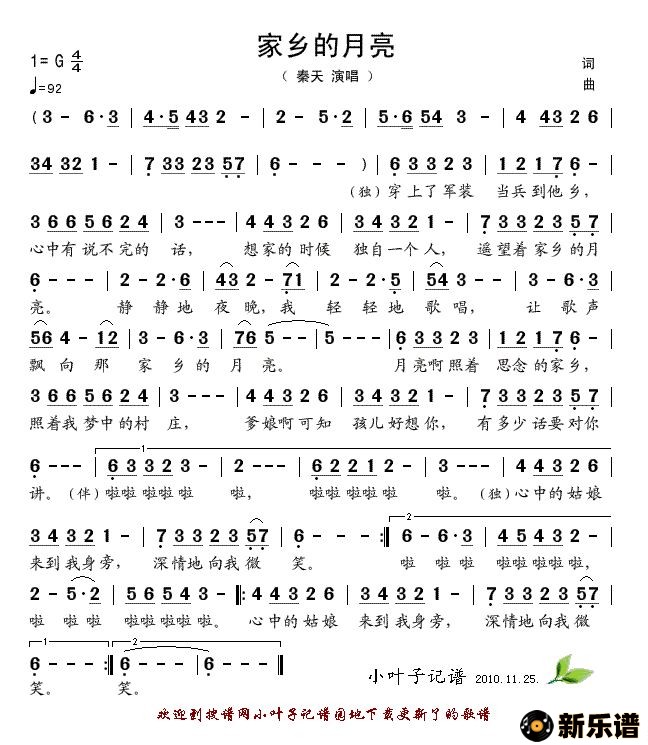 家乡的月亮
1= G 4/4
（ 秦天 演唱 ）
词
♩=92
曲
( 3 - 6· 3 | 4· 5 43 2 | 2 - 5· 2 | 5· 6 54 3 | 2 - - - | 4 43 2 6
34 32 1 - | 7 33 23 57 | 6 - - - ) | 6 33 23 | 12 17 6 -
（独）穿上了军装 当兵到他乡，
3 66 56 24 | 3 - - - | 44 43 26 | 34 32 1 - | 7 33 23 57
心中有说不完的 话， 想家的时候 独自一个人， 遥望着家乡的月
6 - - - | 2 - 2· 6 | 43 2 - 71 | 2 - 2· 5 | 54 3 - - | 3 - 6· 3
亮。 静 静地 夜 晚，我 轻 轻地 歌唱， 让 歌声
56 4 - 12 | 3 - 6· 3 | 76 5 - - | 5 - - - | 6 33 23 | 12 17 6 -
飘向 那 家 乡的 月亮。 月亮啊照着 思念的家乡，
3 66 56 24 | 3 - - - | 44 43 26 | 34 32 1 - | 7 33 23 57
照着我梦中的村 庄， 爹娘啊可知 孩儿好想你， 有多少话要对你
1
6 - - - | 63 32 3 - | 2 - - - | 62 21 2 - | 3 - - - | 44 43 26
讲。（伴）啦啦啦啦啦 啦， 啦啦啦啦啦 啦。（独）心中的姑娘
2
34 32 1 - | 7 33 23 57 | 6 - - - :| 6 - 6· 3 | 45 43 2 -
来到我身旁， 深情地向我微 笑。 啦 啦啦 啦啦啦啦啦，
2 - 5· 2 | 56 54 3 - | 2 - - - |: 44 43 26 | 34 32 1 - | 7 33 23 57
啦 啦啦 啦啦啦啦啦。 心中的姑娘 来到我身旁， 深情地向我微
1 2
6 - - - :| 6 - - - | 6 - - - |
笑。 笑。
小叶子记谱 2010.11.25.
欢迎到搜谱网小叶子记谱园地下载更新了的歌谱
新乐谱